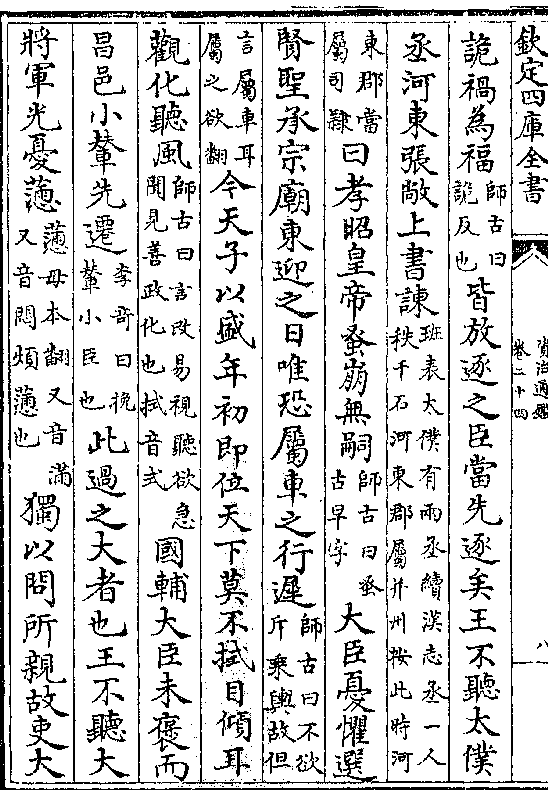 欽定四庫全書 資治通鑑卷二十四 八
詭禍為福師古曰詭反也皆放逐之臣當先逐矣王不聽太僕
丞河東張敞上書諫班表太僕有兩丞續漢志丞一人秩千石河東郡屬并州按此時河
東郡當屬司隸曰孝昭皇帝蚤崩無嗣師古曰蚤古早字大臣憂懼選
賢聖承宗廟東迎之日唯恐屬車之行遲師古曰不欲斥乘輿故但
言屬車耳屬之欲翻今天子以盛年初即位天下莫不拭目傾耳
觀化聽風師古曰言改易視聽欲急聞見善政化也拭音式國輔大臣未褒而
昌邑小輦先遷李奇曰挽輦小臣也此過之大者也王不聽大
將軍光憂懣懣母本翻又音滿又音悶煩懣也獨以問所親故吏大